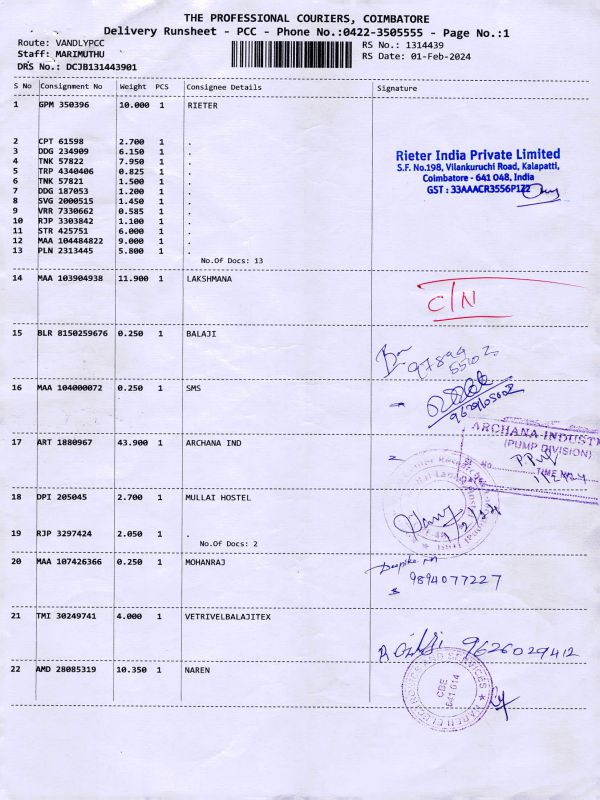 THE PROFESSIONAL COURIERS, COIMBATORE
Delivery Runsheet - PCC - Phone No.:0422-3505555 - Page No.:1
Route: VANDLYPCC
Staff: MARIMUTHU
DRS No.: DCJB131443901
RS No.: 1314439
RS Date: 01-Feb-2024
S No Consignment No Weight PCS Consignee Details Signature
1 GPM 350396 10.000 1 RIETER
2 CPT 61598 2.700 1 .
3 DDG 234909 6.150 1 .
4 TNK 57822 7.950 1 .
5 TRP 4340406 0.825 1 .
6 TNK 57821 1.500 1 .
7 DDG 187053 1.200 1 .
8 SVG 2000515 1.450 1 .
9 VRR 7330662 0.585 1 .
10 RJP 3303842 1.100 1 .
11 STR 425751 6.000 1 .
12 MAA 104484822 9.000 1 .
13 PLN 2313445 5.800 1 .
No.Of Docs: 13
Rieter India Private Limited
S.F. No.198, Vilankuruchi Road, Kalapatti,
Coimbatore - 641 048, India
GST : 33AAACR3556P1Z2
14 MAA 103904938 11.900 1 LAKSHMANA
C/N
15 BLR 8150259676 0.250 1 BALAJI
97899
5502
16 MAA 104000072 0.250 1 SMS
17 ART 1880967 43.900 1 ARCHANA IND
ARCHANA INDUST
(PUMP DIVISION)
NO.
TIME
1/2/24
18 DPI 205045 2.700 1 MULLAI HOSTEL
1/2/24
19 RJP 3297424 2.050 1 .
No.Of Docs: 2
20 MAA 107426366 0.250 1 MOHANRAJ
Deepika
9894077227
21 TMI 30249741 4.000 1 VETRIVELBALAJITEX
9626029412
22 AMD 28085319 10.350 1 NAREN
CBE
641 014